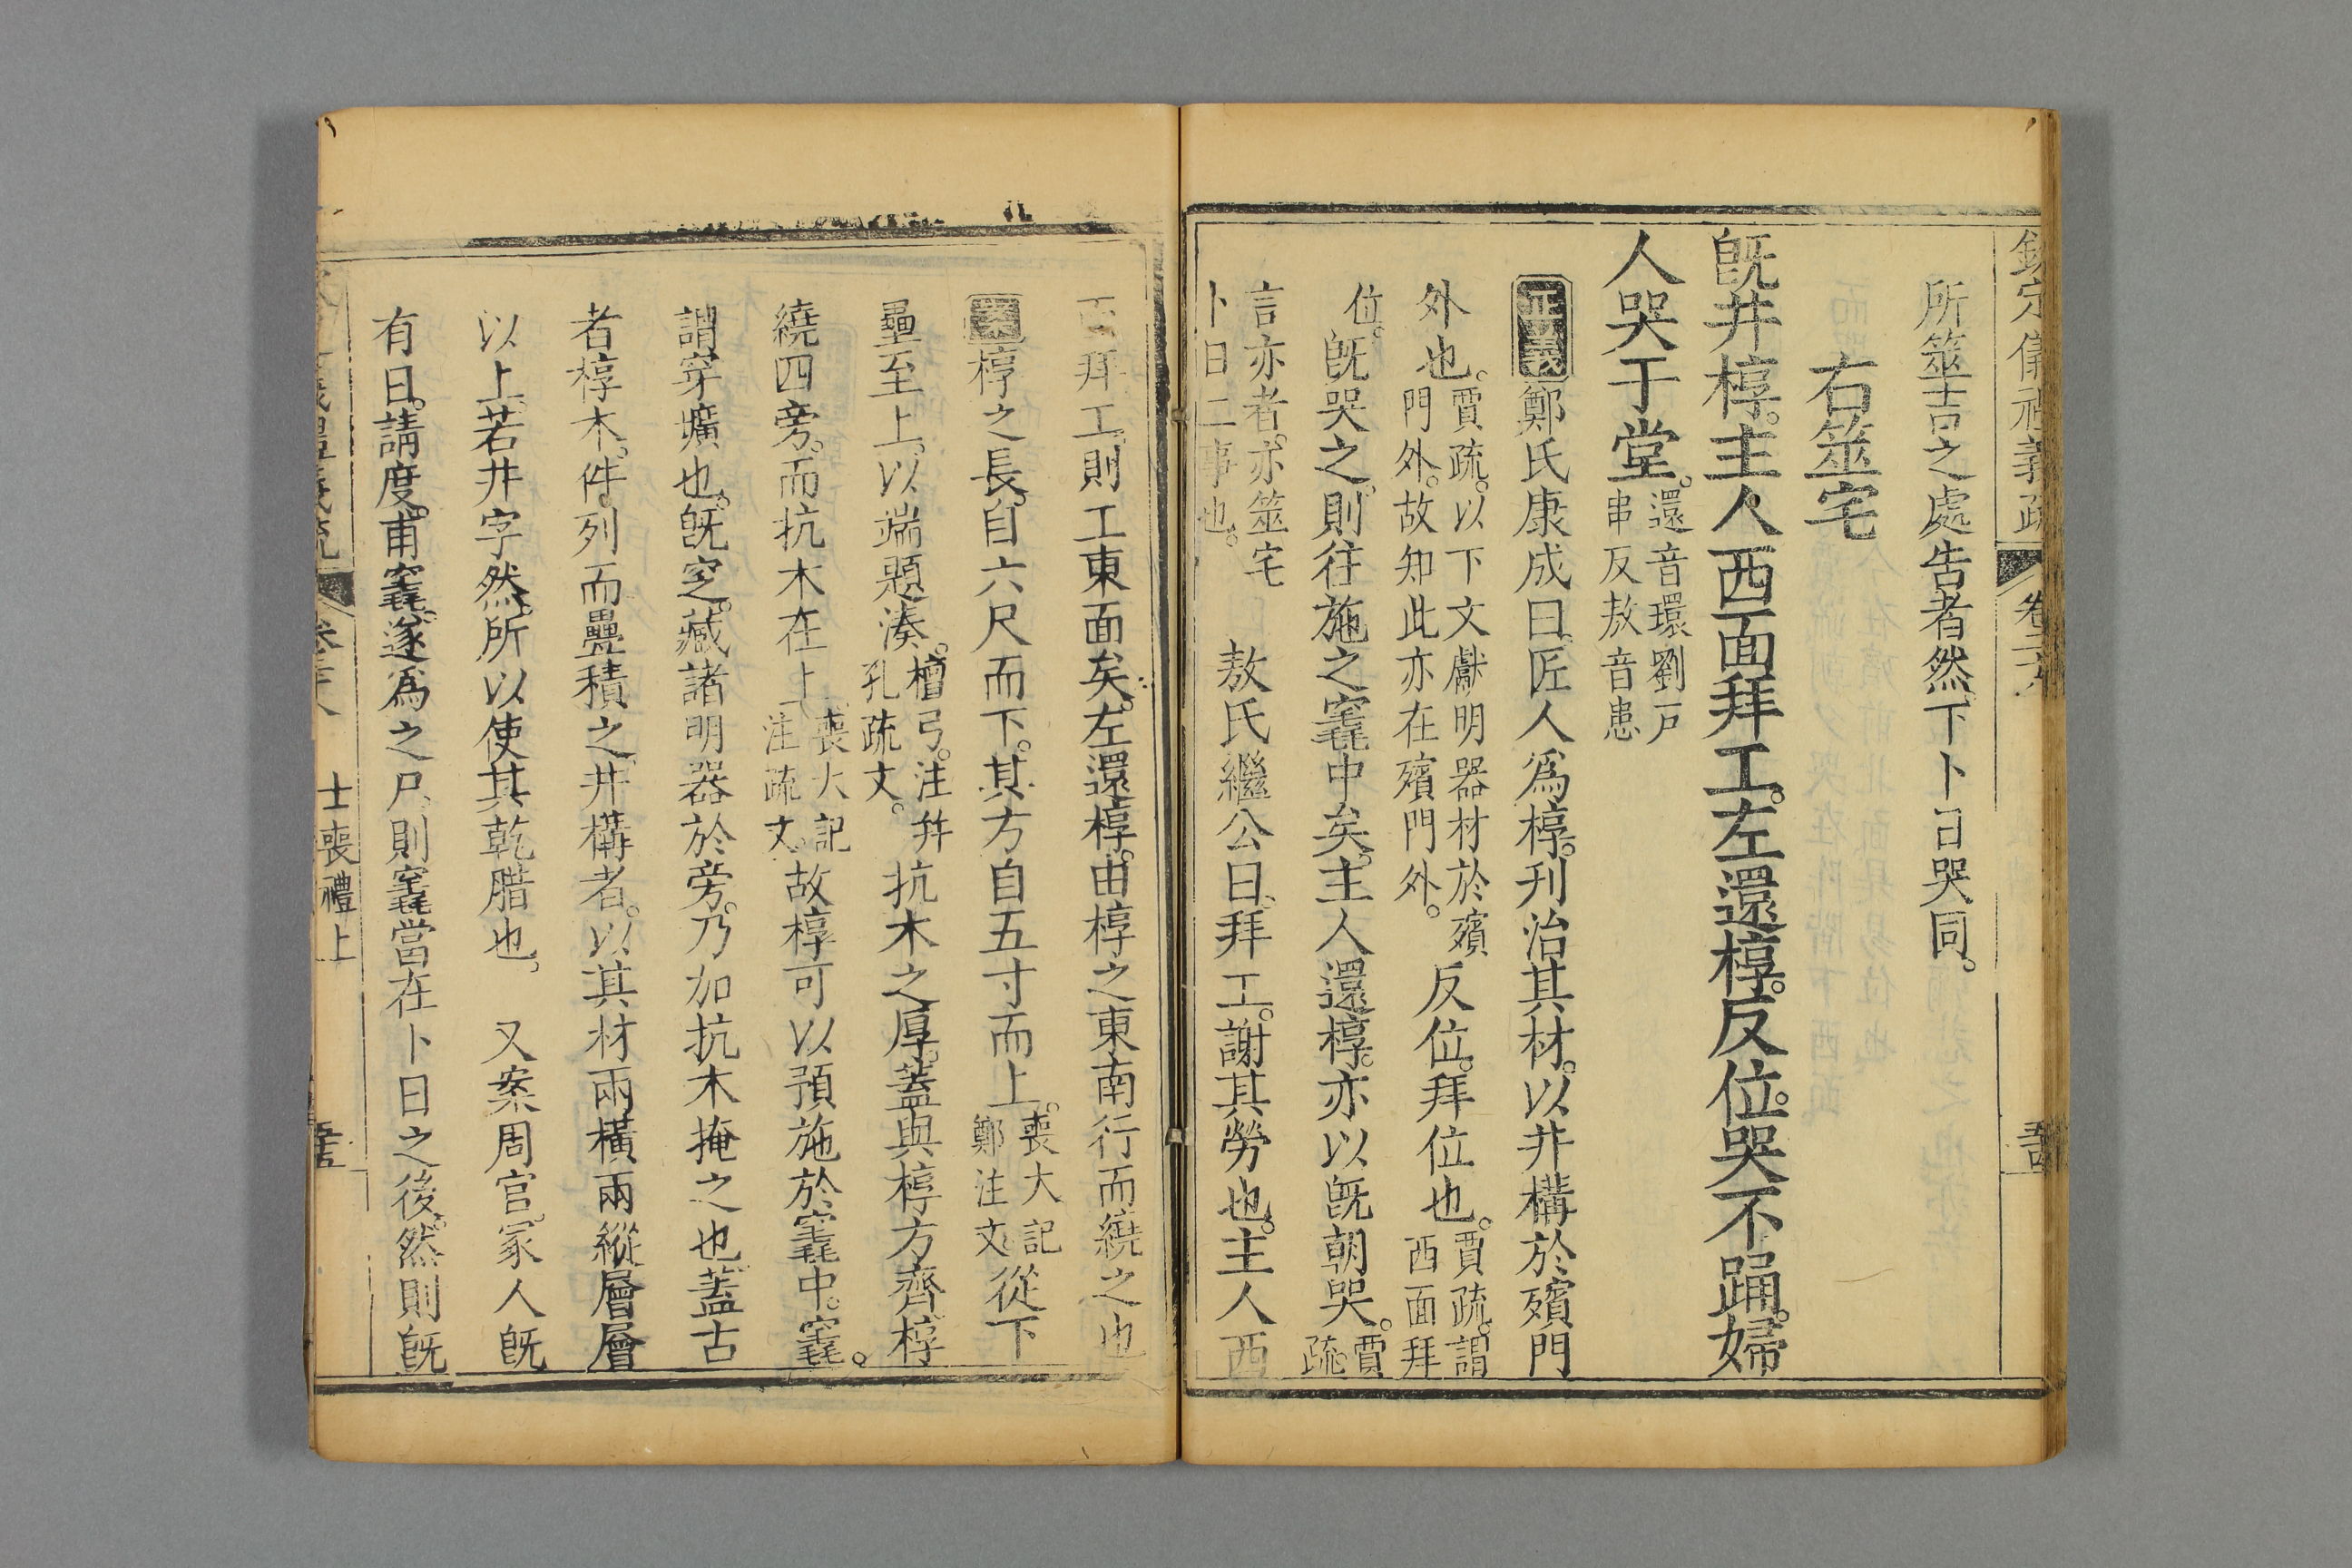 欽定儀禮義疏 卷二十八
所筮吉之處告者然下卜日哭同。
右筮宅
旣井椁。主人西面拜工。左還椁。反位。哭不踊。婦
人哭于堂。還音環劉戶串反敖音患
正義 鄭氏康成曰。匠人爲椁。刋治其材。以井構於殯門
外也。賈疏。以下文獻明器材於殯門外。故知此亦在殯門外。反位。拜位也。賈疏。謂西面拜
位。旣哭之。則往施之窆中矣。主人還椁。亦以旣朝哭。賈疏。
言亦者。亦筮宅卜日二事也。 敖氏繼公曰。拜工。謝其勞也。主人西
面拜工。則工東面矣。左還椁。由椁之東南行而繞之也
案 椁之長。自六尺而下。其方自五寸而上。喪大記鄭注文 從下
壘至上。以端題湊。檀弓。注幷孔疏文。 抗木之厚。蓋與椁方齊。椁
繞四旁。而抗木在上。喪大記注疏文。故椁可以預施於竁中。竁。
謂穿壙也。旣窆。藏諸明器於旁。乃加抗木掩之也。蓋古
者椁木。件列而疊積之。井構者。以其材兩橫兩縱層層
以上。若井字然。所以使其乾腊也。 又案周官。冢人旣
有日。請度。甫竁。遂爲之尸。則竁當在卜日之後。然則旣
士喪禮上